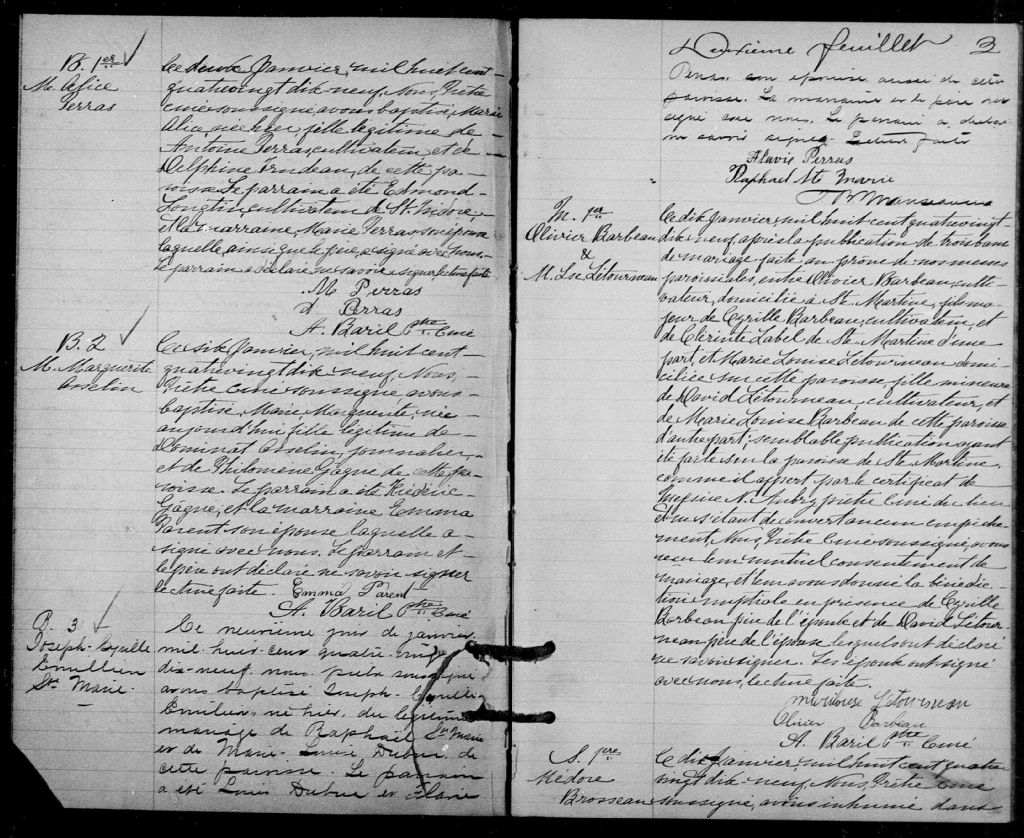 B. 1er
M. Alice
Perras
Ce deux Janvier, mil huit cent
quatrevingt dix neuf, Nous, Prêtre
curé soussigné avons baptisé Marie
Alice, née hier fille légitime de
Antoine Perras, cultivateur et de
Delphine Trudeau, de cette pa-
roisse. Le parrain a été Edmond
Longtin, cultivateur de St. Isidore,
et la marraine, Marie Perras son épouse
laquelle, ainsi que le père, a signé avec nous.
Le parrain a déclaré ne savoir signer lecture faite
M Perras
A Perras
A. Baril Ptre Curé
B. 2
M. Marguerite
Asselin
Ce six Janvier, mil huit cent
quatrevingt dix neuf, Nous,
Prêtre curé soussigné, avons
baptisé, Marie Marguerite, née
aujourd'hui fille légitime de
Asselin, journalier,
et de Philomène Gagné de cette pa-
roisse. Le parrain a été Frédéric
Gagné, et la marraine Emma
Parent son épouse laquelle a
signé avec nous. Le parrain et
le père ont déclaré ne savoir signer
lecture faite. Emma Parent
A. Baril Ptre Curé
B. 3
Joseph-Cyrille
Emilien
Ste Marie
Ce neuvième jour de janvier
mil huit cent quatre-vingt
dix-neuf, nous prêtre soussigné
avons baptisé Joseph-Cyrille
Emilien, né hier, du légitime
mariage de Raphaël Ste Marie
et de Marie-Louise Dubuc de
cette paroisse. Le parrain
a été Louis Dubuc et Flavie
Deuxième feuillet 3
Perras son épouse aussi de cette
paroisse. La marraine et le père ont
signé avec nous. Le parrain a déclaré
ne savoir signer. Lecture faite
Flavie Perras
Raphael Ste Marie
M. 1er
Olivier Barbeau
&
M. Lse Létourneau
Ce dix Janvier, mil huit cent quatrevingt
dix neuf, après la publication de trois bans
de mariage faite au prône de nos messes
paroissiales, entre Olivier Barbeau, culti-
vateur, domicilié à Ste. Martine, fils ma-
jeur de Cyrille Barbeau, cultivateur, et
de Label de Ste. Martine d'une
part, et Marie Louise Létourneau domi-
ciliée sur cette paroisse, fille mineure
de David Létourneau, cultivateur, et
de Marie Louise Barbeau de cette paroisse
d'autre part; semblable publication ayant
été faite sur la paroisse de Ste Martine
comme il appert par le certificat de
Messire A. Aubry prêtre Curé du lieu
Et ne s'étant découvert aucun empêche-
ment, Nous, Prêtre Curé soussigné, avons
reçu leur mutuel consentement de
mariage, et leur avons donné la bénédic-
tion nuptiale en présence de Cyrille
Barbeau père de l'époux et de David Létour-
neau père de l'épouse lesquels ont déclaré
ne savoir signer. Les époux ont signé
avec nous, lecture faite.
Létourneau
Olivier Barbeau
A. Baril Ptre Curé
S. 1ère
Médore
Brosseau
Ce dix Janvier, mil huit cent quatre
vingt dix neuf, Nous, Prêtre Curé
soussigné, avons inhumé dans